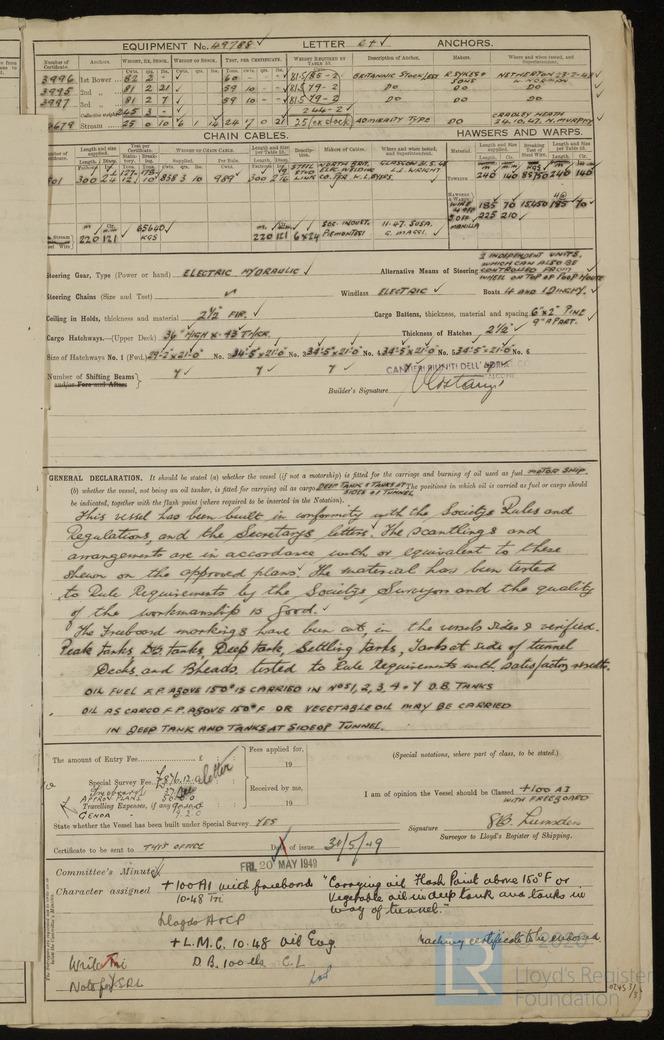 EQUIPMENT No. 49788 LETTER et ANCHORS.
Number of Certificate. Anchors. Weight, Ex. Stock. Ex. Stock. Test, per Certificate. Weight Required by Table 53. Description of Anchor. Makers. Where and when tested, and Superintendent.
3996 1st Bower 82 2 - 60 - - 81.5/85-2 BRITANNIC STOCKLESS R. SYKES & SONS NETHERTON
3995 2nd " 81 2 21 59 10 - - 81.5 79-2 DO DO DO
3997 3rd " 81 2 7 59 10 - - 81.5 79-2 DO DO DO
Collective weight 245 3 - 244-2
Stream 25 0 10 6 1 14 24 7 0 21 25 (ex stock) ADMIRALTY TYPE DO CRADLEY HEATH 24.10.47. N. MURPHY
CHAIN CABLES. HAWSERS AND WARPS.
Length and size supplied. Test per Certificate. Weight of Chain Cable. Length and size per Table 53. Description. Makers of Cables. Where and when tested, and Superintendent. Material. Length and Size supplied. Breaking Test of Steel Wire. Length and size per Table 53.
300 2 1/4 858 3 10 989 300 2 7/16 STEEL STUD LINK NORTH BRIT. ELEC. WELDING CO. FOR W. L. BYERS GLASGOW L.S. WRIGHT
TOWLINE 240 140 240 140
HAWSERS & WARPS 185 70 15450 185 70
225 210
MANILLA
220 121 65640 KGS 220 121 6x24 PIEMONTESI 11.47. SUSA. G. MAGGI.
Steering Gear, Type (Power or hand) ELECTRIC HYDRAULIC Alternative Means of Steering 2 INDEPENDENT UNITS, WHICH CAN ALSO BE CONTROLLED FROM WHEEL ON TOP OF POOP HOUSE
Steering Chains (Size and Test) Windlass ELECTRIC Boats 4 AND 1 DINGHY.
Ceiling in Holds, thickness and material 2 1/2" FIR. Cargo Battens, thickness, material and spacing 6"x2" PINE 9" APART.
Cargo Hatchways.—(Upper Deck) 36" HIGH x .43 THK. Thickness of Hatches 2 1/2"
Size of Hatchways No. 1 (Fwd.) 29'-2"x21'-0" No. 2 34'-5"x21'-0" No. 3 34'-5"x21'-0" No. 4 34'-5"x21'-0" No. 5 34'-5"x21'-0" No. 6
Number of Shifting Beams and/or Fore and Afters 7 7 7
CANTIERI RIUNITI DELL' ADRIATICO
Builder's Signature
GENERAL DECLARATION. It should be stated (a) whether the vessel (if not a motorship) is fitted for the carriage and burning of oil used as fuel MOTOR SHIP.
(b) whether the vessel, not being an oil tanker, is fitted for carrying oil as cargo DEEP TANK & TANKS AT SIDES OF TUNNEL The positions in which oil is carried as fuel or cargo should
be indicated, together with the flash point (where required to be inserted in the Notation).
This vessel has been built in conformity with the Societys Rules and
Regulations, and the Secretary's letters. The scantlings and
arrangements are in accordance with or equivalent to these
shewn on the approved plans. The material has been tested
to Rule Requirements by the Societys Surveyors and the quality
of the workmanship is good.
The Freeboard markings have been cut in the vessels sides & verified.
Peak tanks, D.B. tanks, Deep tank, Settling tanks, Tanks at side of tunnel
Decks and Bheads tested to Rule requirements with satisfactory results.
OIL FUEL F.P. ABOVE 150° IS CARRIED IN Nos 1, 2, 3, 4 & 7 D.B. TANKS
OIL AS CARGO F.P. ABOVE 150°F OR VEGETABLE OIL MAY BE CARRIED
IN DEEP TANK AND TANKS AT SIDE OF TUNNEL.
The amount of Entry Fee £ : : Fees applied for, 19
(Special notations, where part of class, to be stated.)
Special Survey Fee letter
FREEBOARD
APPROV PLANS
Travelling Expenses, if any
GENOA 9 2 0
Received by me, 19
I am of opinion the Vessel should be Classed +100 A1 WITH FREEBOARD
State whether the Vessel has been built under Special Survey YES
Signature
Surveyor to Lloyd's Register of Shipping.
Certificate to be sent to THIS OFFICE Date of issue 31/5/49
FRI. 20 MAY 1949
Committee's Minute
Character assigned +100A1 with freeboard "Carrying oil Flash Point above 150°F or
10.48 Vegetable oil in deep tank and tanks in
way of tunnel."
Lloyds A & CP
+ L.M.C. 10.48 Oil Eng. Machinery certificate to be endorsed
D.B. 100 lb. C.L.
Write
Note for SRL
© 2020
LR
Lloyd's Register
Foundation